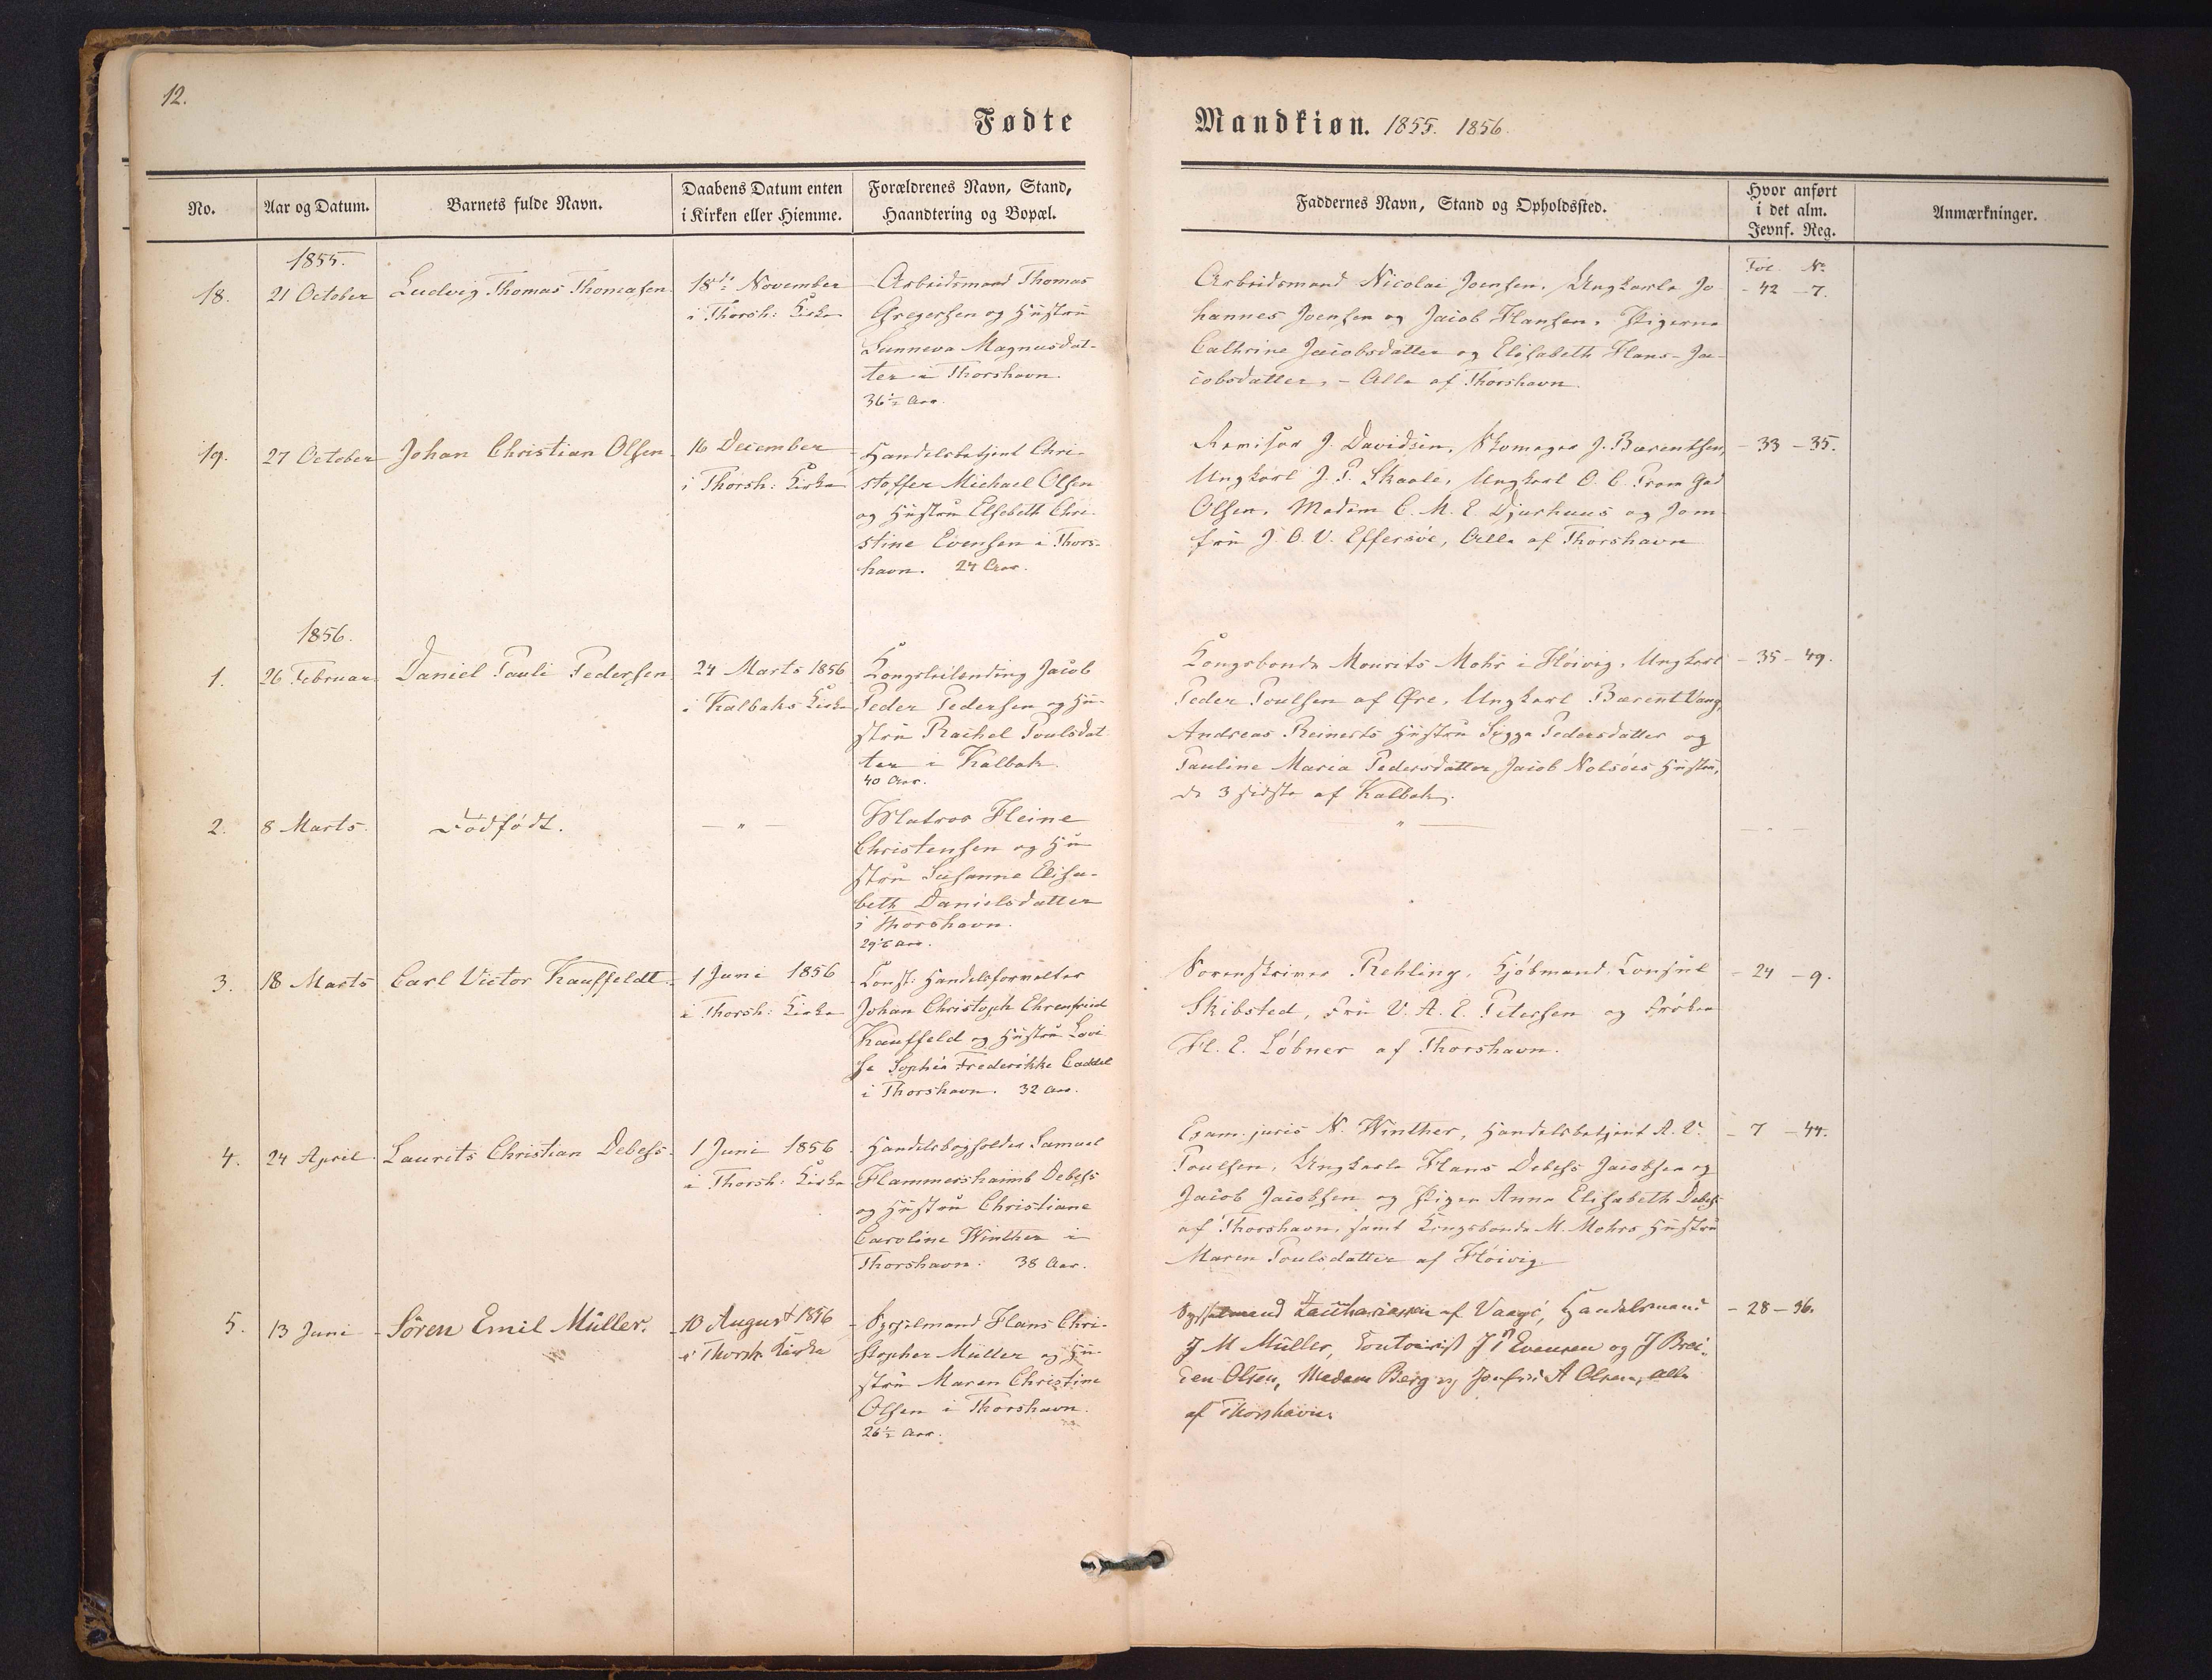 12.
Fødte
Mandkiøn. 1855. 1856.
No.
Aar og Datum.
Barnets fulde Navn.
Daabens Datum enten
i Kirken eller Hiemme.
Forældrenes Navn, Stand,
Haandtering og Bopæl.
Faddernes Navn, Stand og Opholdssted.
Hvor anført
i det alm.
Jevnf. Reg.
Anmærkninger.
1855.
18.
21 October
Ludvig Thomas Thomasen
18de November
i Thorsh: Kirke
Arbeidsmand Thomas
Gregersen og Hustru
Sunneva Magnusdat-
ter i Thorshavn.
36½ Aar.
Arbeidsmand Nicolai Joensen, Ungkarle Jo
hannes Joensen og Jacob Hansen, Pigerne
Cathrine Jacobsdatter og Elisabeth Hans-Ja-
cobsdatter, - Alle af Thorshavn.
Fol. No
- 42 - 7.
19.
27 October
Johan Christian Olsen
16 December
i Thorsh: Kirke
Handelsbetjent Chri-
stoffer Michael Olsen
og Hustru Elsebeth Chri-
stine Evensen i Thors-
havn. 24 Aar.
Revisor J. Davidsen, Skomager J. Barentsen,
Ungkarl J. P. Skaale, Ungkarl O. C. From Gad
Olsen, Madam C. M. E. Djurhuus og Jom
fru J. O. V. Effersöe, Alle af Thorshavn
- 33 - 35.
1856.
1.
26 Februar
Daniel Pauli Pedersen
24 Marts 1856
i Kalbaks Kirke
Kongsleilænding Jacob
Peder Pedersen og Hu-
stru Rachel Poulsdat
ter i Kalbak.
40 Aar.
Kongsbonde Mourits Mohr i Höivig, Ungkarl
Peder Poulsen af Øre, Ungkarl Barent Vang,
Andreas Reinerts Hustru Sigga Pedersdatter og
Pauline Maria Pedersdatter Jacob Nolsöes Hustru,
de 3 sidste af Kalbak.
- 35 - 49.
2.
8 Marts
Dödfödt.
— " —
Matros Heine
Christensen og Hu
stru Susanne Elisa-
beth Danielsdatter
i Thorshavn.
" —
— " —
3.
18 Marts
Carl Victor Kauffeldt
1 Juni 1856
i Thorsh: Kirke
Const: Handelsforvalter
Johan Christoph Ehrenfried
Kauffeld og Hustru Lovi
se Sophie Frederikke Caddel
i Thorshavn. 32 Aar.
Sorenskriver Rehling, Kjöbmand, Consul
Skibsted, Fru V. A. E. Petersen og Fröken
H. E. Löbner af Thorshavn.
- 24 - 9.
4.
24 April
Laurits Christian Debess
1 Juni 1856
i Thorsh: Kirke
Handelsbogholder Samuel
Hammershaimb Debess
og Hustru Christiane
Caroline Winther i
Thorshavn. 38 Aar.
Exam. juris N. Winther, Handelsbetjent A. V.
Poulsen, Ungkarle Hans Debess Jacobsen og
Jacob Jacobsen og Pigen Anna Elisabeth Debess
af Thorshavn, samt Kongsbonde M. Mohrs Hustru
Maren Poulsdatter af Höivig
- 7 - 44.
5.
13 Juni
Sören Emil Müller.
10 August 1856
i Thorsh. Kirke
Sysselmand Hans Chri-
stopher Müller og Hu-
stru Maren Christine
Olsen i Thorshavn.
26½ Aar.
Sysselmand Zachariasen af Vaagö, Handelsmand
J M Müller, Contoirist J Evensen og J
Olsen, Madam Berg og Jomfru A Olsen, alle
af Thorshavn.
- 28 - 36.